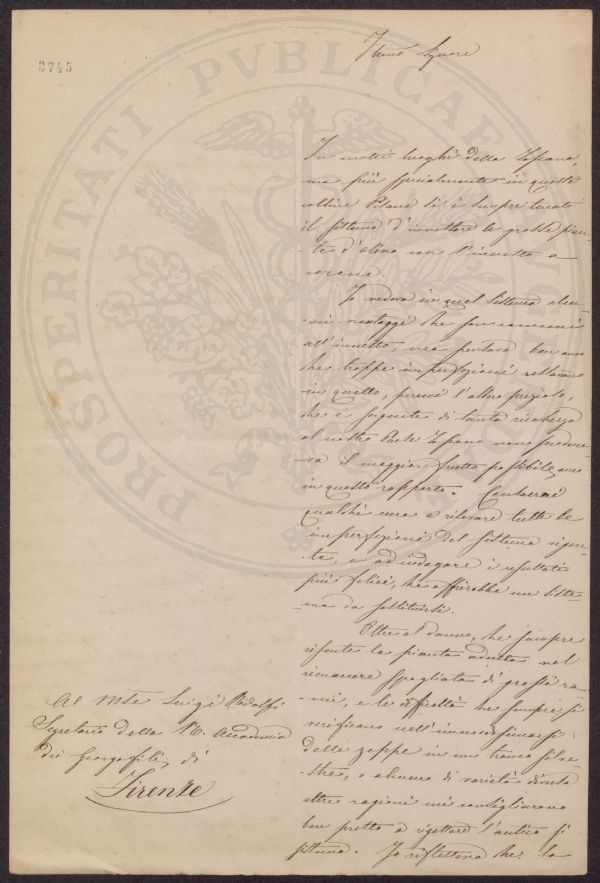 2745
PROSPERITATI PVBLICAE
Illmo Signore
In molti luoghi della Toscana,
ma più specialmente in queste
colline Pisane si è sempre usato
il sistema d'innestare le grosse pian-
-te d'olivo con l'innesto a
corona.
Io vedeva in quel sistema alcu-
-ni vantaggi che son comuni
all'innesto, ma pensava ben anco
che troppe imperfezioni restavano
in quello, perché l'olivo prezioso,
che è sorgente di tanta ricchezza
al nostro Paese Toscano non produce-
-va il maggior frutto possibile, anco
in questo rapporto.
qualche cura a rilevare tutte le
imperfezioni del sistema vigen-
-te, e ad indagare i resultati
più felici, che offrirebbe un siste
ma da sostituirsi.
Oltre al danno, che sempre
risente la pianta adulta nel
rimanere spogliata di grosse ra-
-mi, e le difficoltà che sempre si
verificano nell'immedesimarsi
delle zeppe in un tronco silve-
-stre, o almeno di varietà diversa
altre ragioni mi consigliarono
ben presto a rigettare l'antico si
stema. Io rifletteva che la
Al Mse Luigi Ridolfi
Segretario della R. Accademia
dei Georgofili, di
Firenze